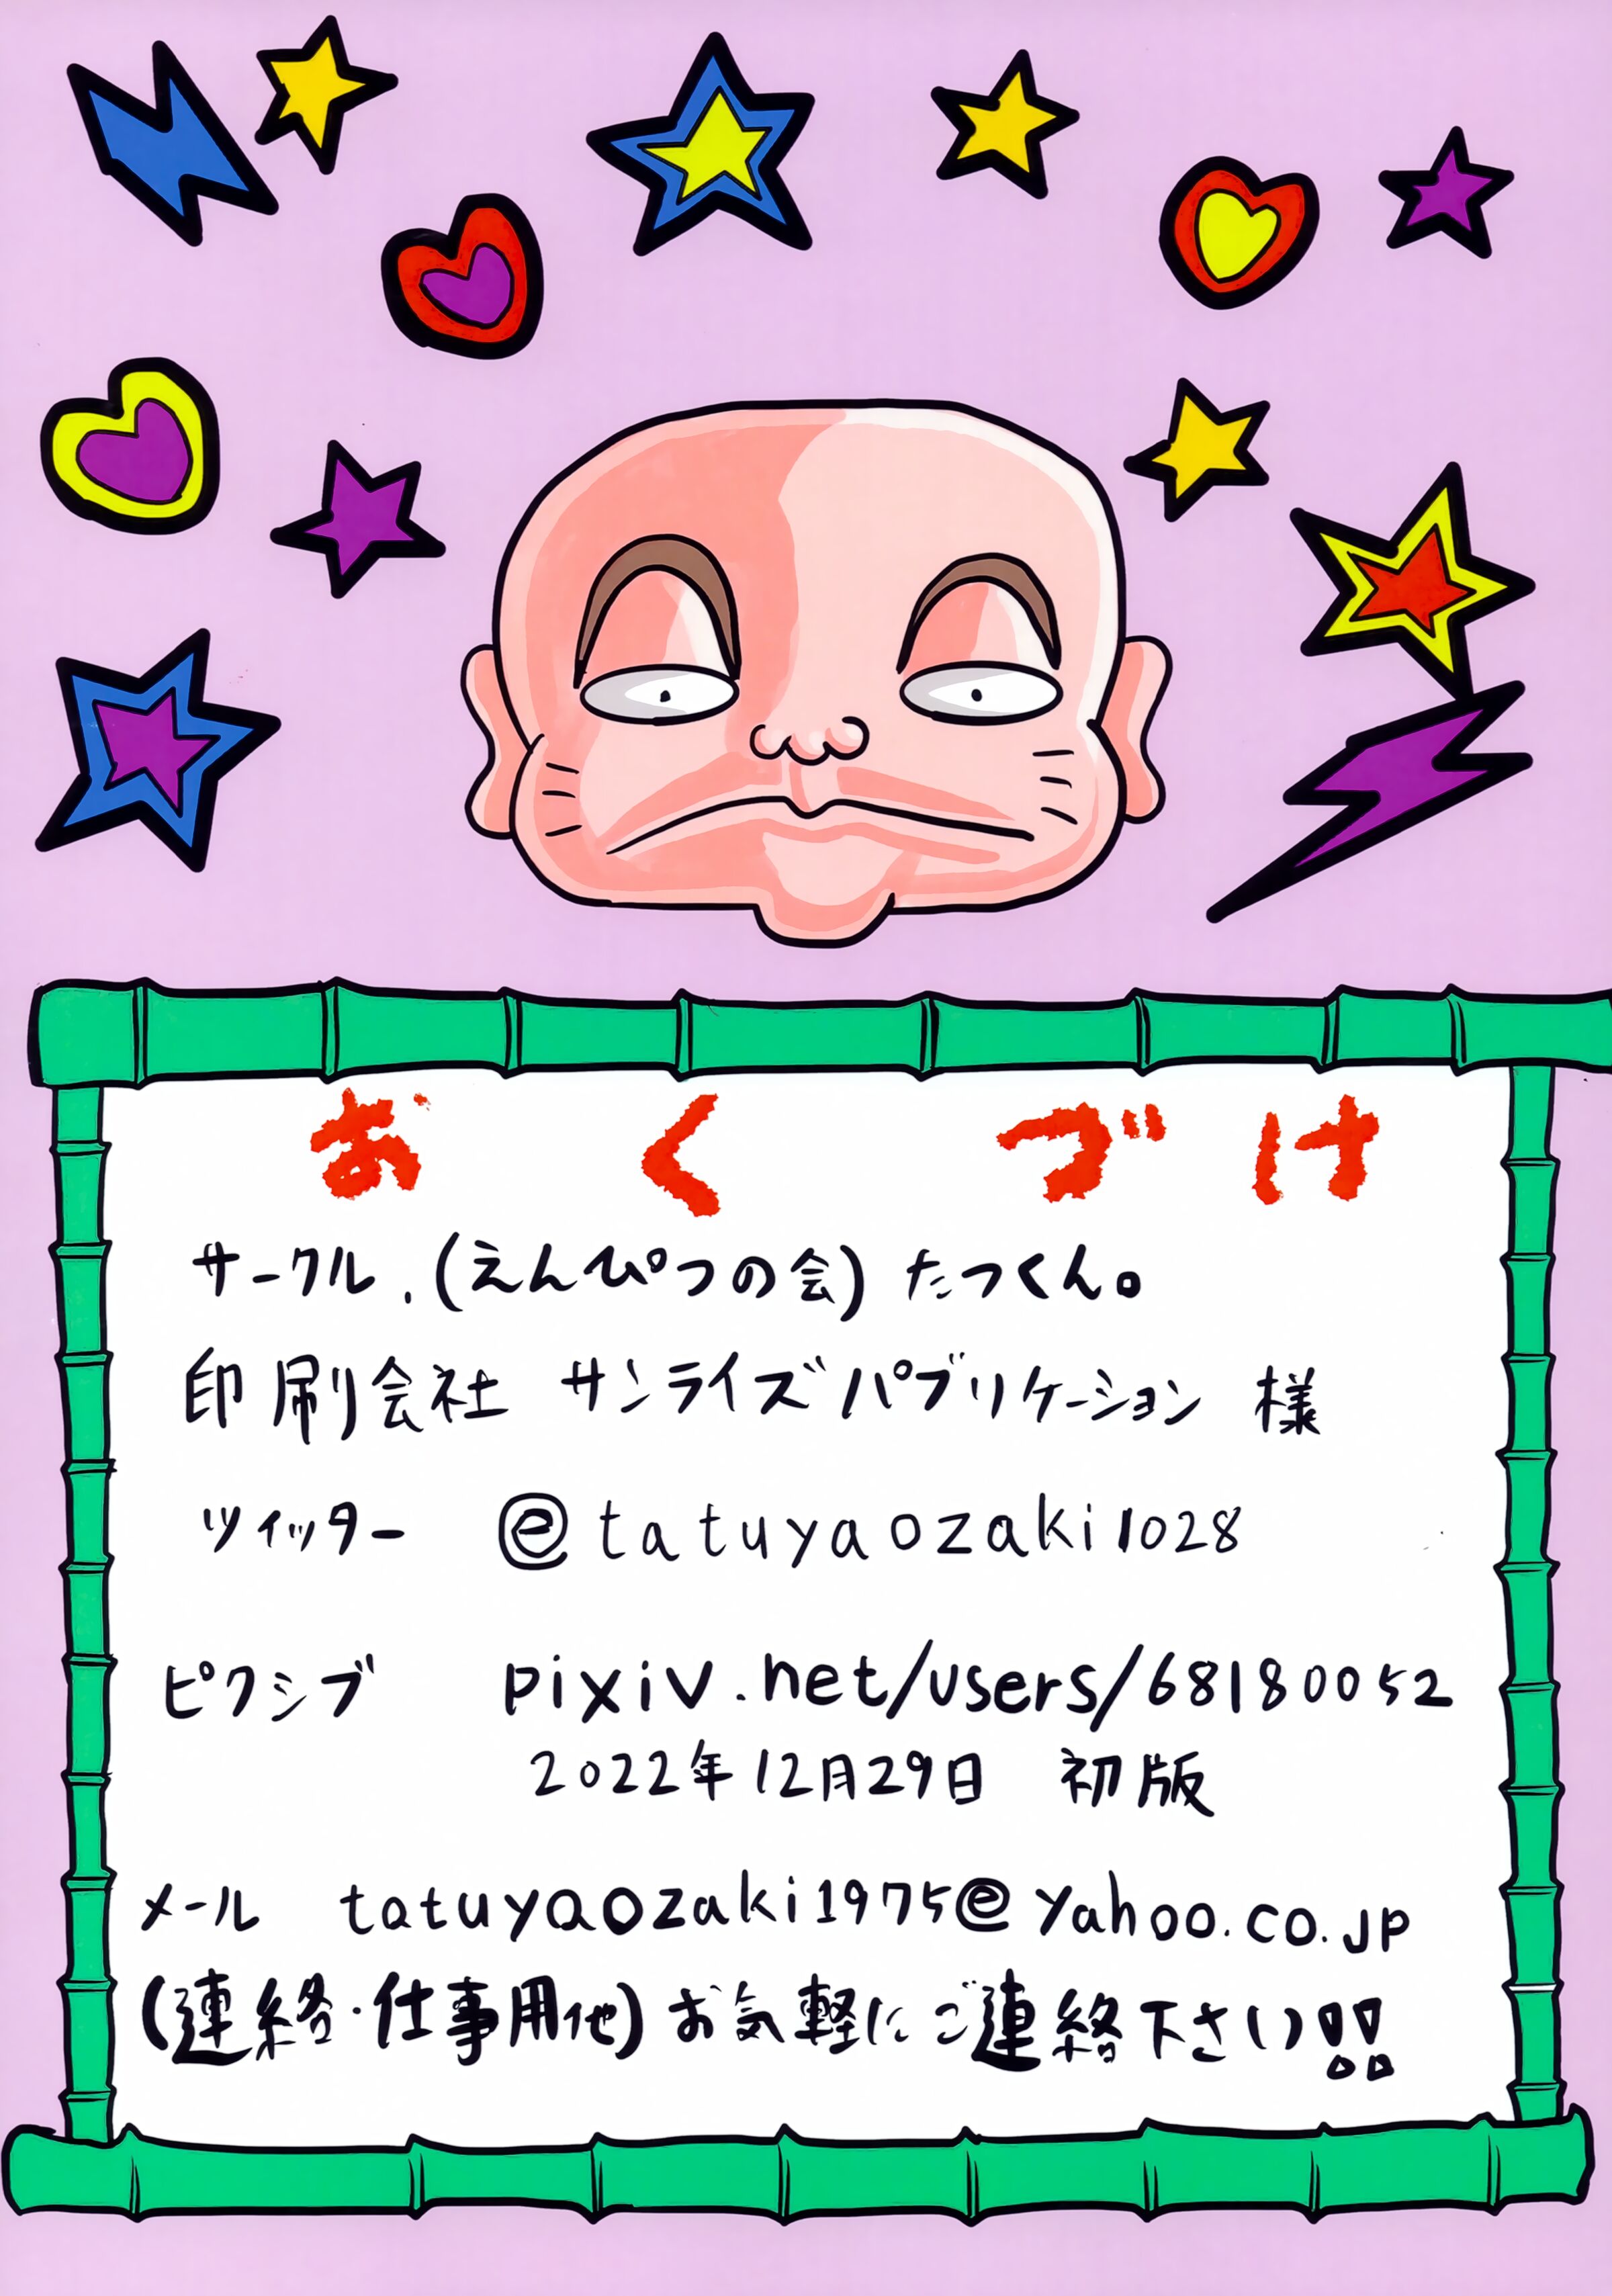 おくづけ
サークル.(えんぴつの会)たつくん。
印刷会社 サンライズパブリケーション 様
ツイッター @tatuyaozaki1028
ピクシブ pixiv.net/users/68180052
2022年12月29日 初版
メール tatuyaozaki1975@yahoo.co.jp
(連絡・仕事用他)お気軽にご連絡下さい!!